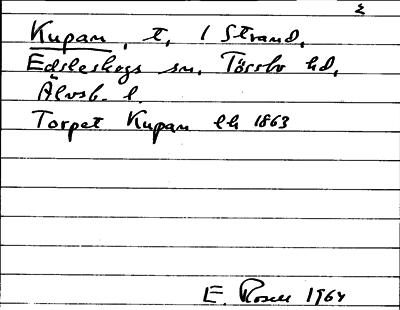 Kupan, t, / Strand,
Edsleskogs sn, Tössbo hd,
Älvsb. l.
Torpet Kupan lh 1863
E. Rosell 1964